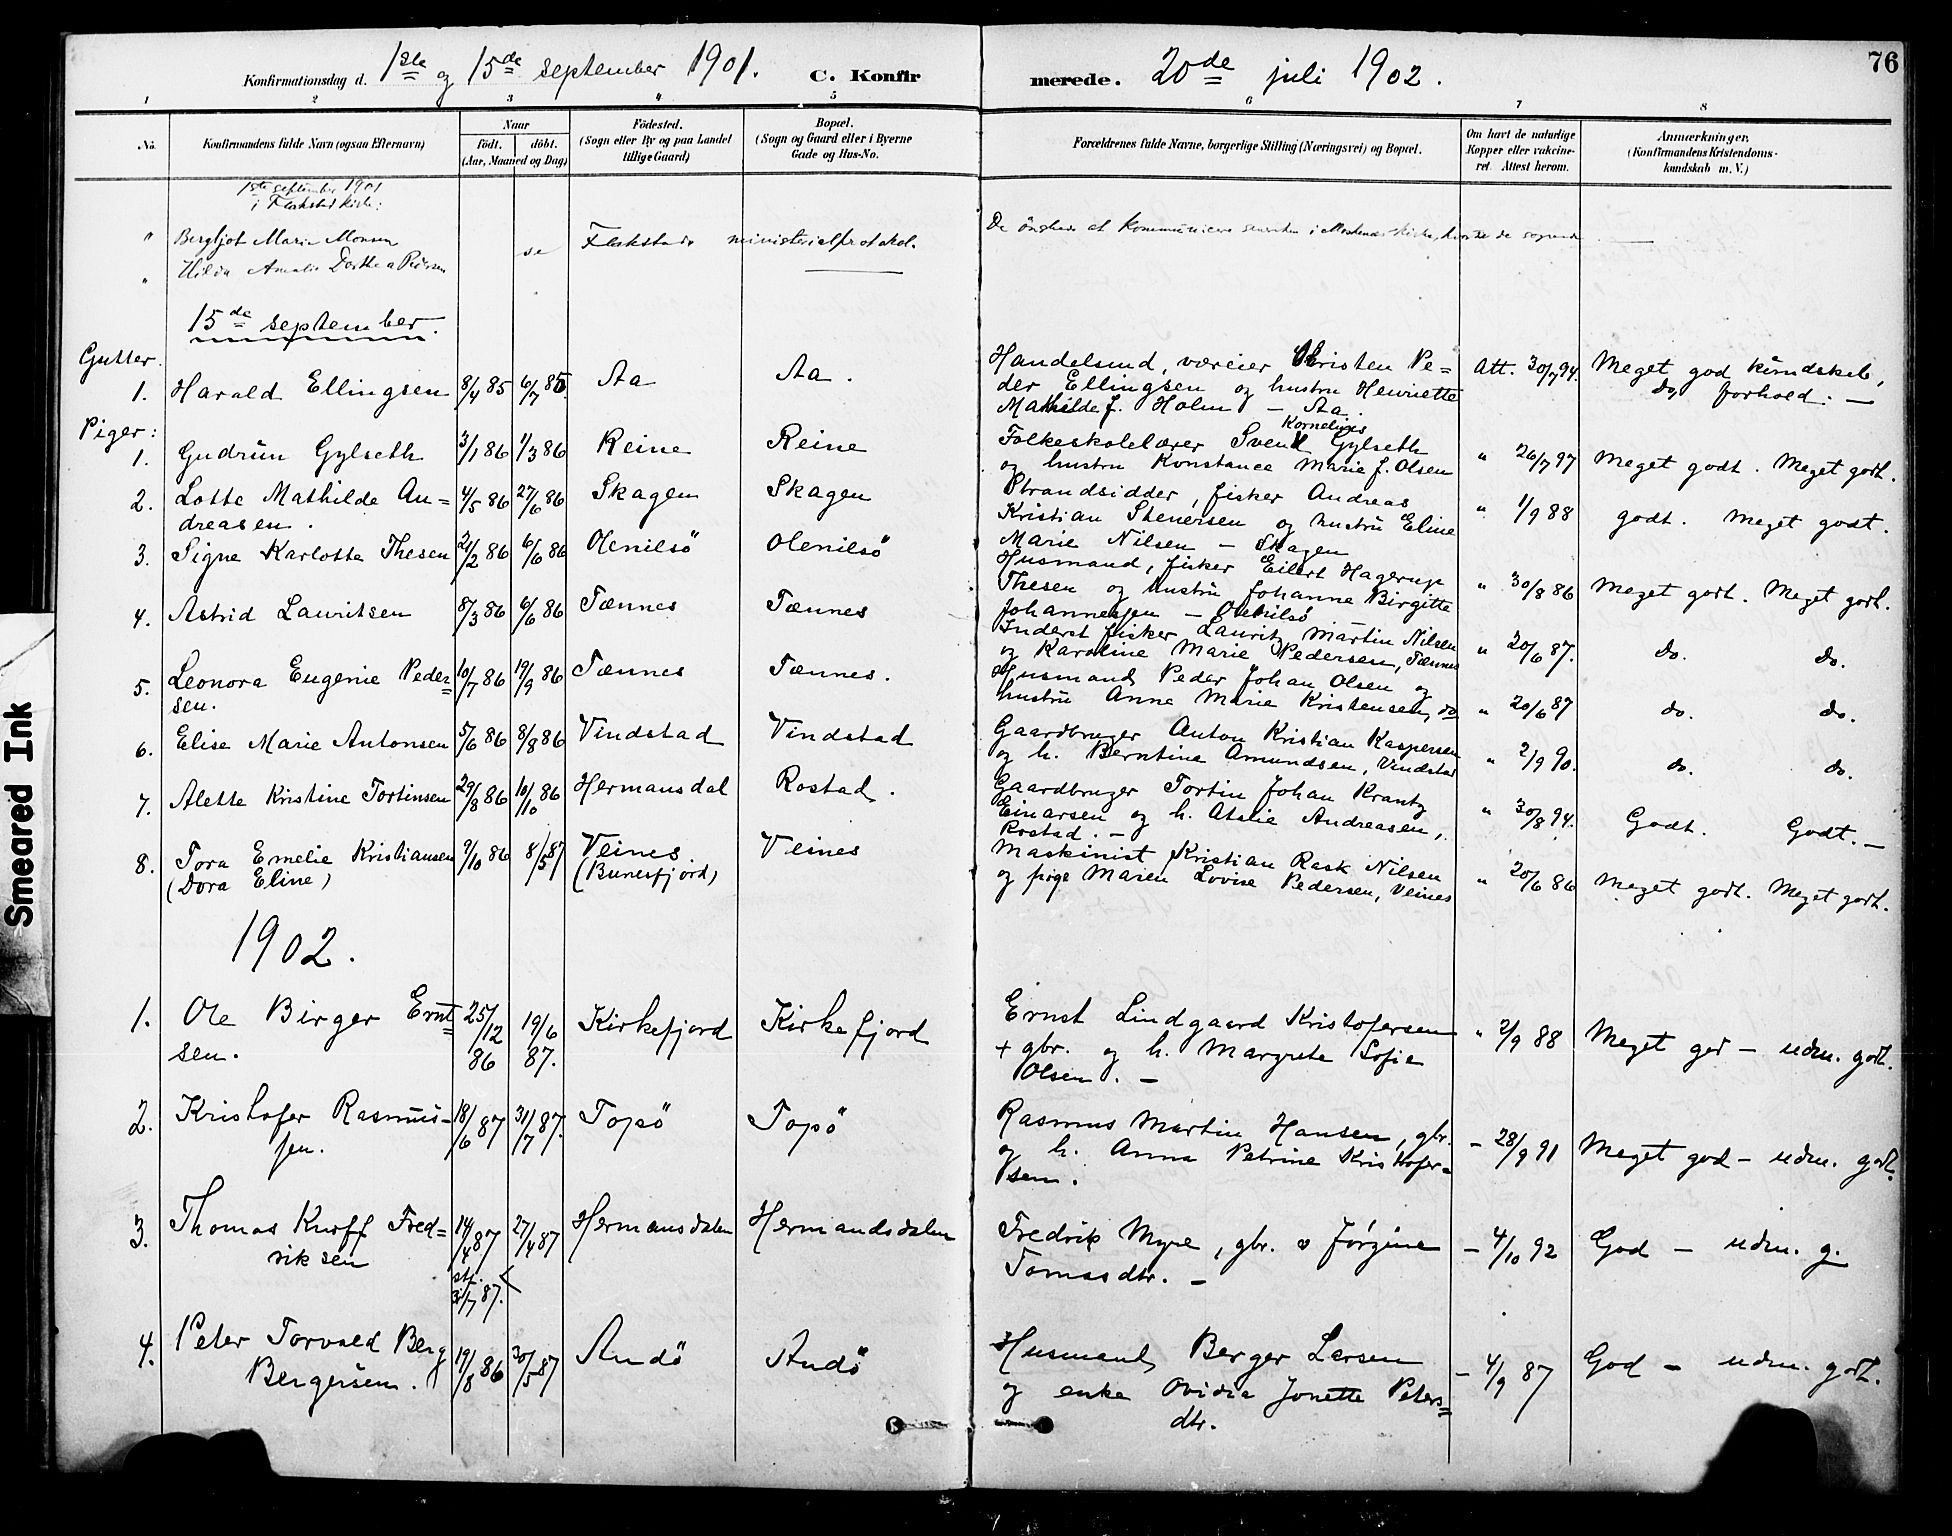 76
Konfirmationsdag d. 1ste og 15de september 1901. C. Konfirmerede. 20de juli 1902.
1 2 3 4 5 6 7 8
No. Konfirmandens fulde Navn (ogsaa Efternavn) Naar födt. döbt. (Aar, Maaned og Dag) Födested. (Sogn eller By og paa Landet tillige Gaard) Bopæl. (Sogn og Gaard eller i Byerne Gade og Hus-No. Forældrenes fulde Navne, borgerlige Stilling (Næringsvei) og Bopæl. Om havt de naturlige Kopper eller vakcineret. Attest herom. Anmærkninger. (Konfirmandens Kristendomskundskab m. V.)
1ste september 1901
i Flakstad kirke:
" Bergljot Marie Monsen
" Hilda Amalie Dorthea Pedersen
se Flakstads ministerialprotokol.
De önskede at kommunicere i Moskenes kirke,
15de september.
Gutter.
1. Harald Ellingsen 8/4 85 6/7 85. Aa Aa.
Handelsmd, væreier Kristen Pe=
der Ellingsen og hustru Henriette
Mathilde f. Holm – Aa.
Att. 30/7 94. Meget god kundskab,
do. forhold. —
Piger:
1. Gudrun Gylseth 3/1 86 1/3 86 Reine Reine
Kornelius
Folkeskolelærer Svend Gylseth
og hustru Konstance Marie f. Olsen
" 26/7 97 Meget godt. Meget godt.
2. Lotte Mathilde An=
dreasen.
4/5 86 27/6 86 Skagen Skagen
Strandsidder, fisker Andreas
Kristian Stenersen og hustru Eline
Marie Nilsen – Skagen
" 1/9 88 godt. Meget godt.
3. Signe Karlotte Thesen 21/2 86 6/6 86 Olenilsö Olenilsö
Husmand, fisker Eilert Hagerup
Thesen og hustru Johanne Birgitte
Johannessen – Olenilsö
" 30/8 86 Meget godt. Meget godt.
4. Astrid Lauritsen 8/3 86 6/6 86 Tænnes Tænnes
Inderst fisker Lauritz Martin Nilsen
og Karoline Marie Pedersen, Tænnes
" 20/6 87. do. do.
5. Leonora Eugenie Peder=
sen.
10/7 86 19/9 86 Tænnes Tænnes.
Husmand Peder Johan Olsen og
hustru Anne Marie Kristensen, do
" 20/6 87 do. do.
6. Elise Marie Antonsen 5/6 86 8/8 86 Vindstad Vindstad
Gaardbruger Anton Kristian Kaspersen
og h. Berntine Amundsen, Vindstad
" 2/9 90. do. do.
7. Alette Kristine Tortinsen 29/8 86 10/10 86 Hermansdal Rostad.
Gaardbruger Tortin Johan Krantz
Einarsen og h. Atalie Andreasen,
Rostad. –
" 30/8 94. Godt. Godt. –
8. Tora Emelie Kristiansen
(Dora Eline)
9/10 86 8/5 87 Veines
(Bunesfjord)
Veines
Maskinist Kristian Rask Nilsen
og pige Maren Lovise Pedersen, Veines
" 20/6 86 Meget godt. Meget godt.
1902.
1. Ole Birger Ernt=
sen.
25/12 86 19/6 87. Kirkefjord Kirkefjord
Ernst Lindgaard Kristofersen
+ gbr. og h. Margrete Sofie
Olsen. –
" 2/9 88 Meget god – udm. godt.
2. Kristofer Rasmus-
sen.
18/6 87 31/7 87. Topsö Topsö
Rasmus Martin Hansen, gbr.
og h. Anna Petrine Kristofer=
sen.
– 28/9 91 Meget god – udm. godt.
3. Thomas Knoff Fred=
riksen
14/4 87 27/4 87
stf.
31/7 87.
Hermansdalen Hermandsdalen
Fredrik Myre, gbr. o Jørgine
Tomasdtr. –
– 4/10 92 God – udm. g.
4. Peter Torvald Berg
Bergersen.
19/8 86 30/5 87 Andö Andö
Husmand Berger Larsen
og enke Ovidia Jonette Peters=
dtr.
– 4/9 87 God – udm. godt.
Smeared Ink